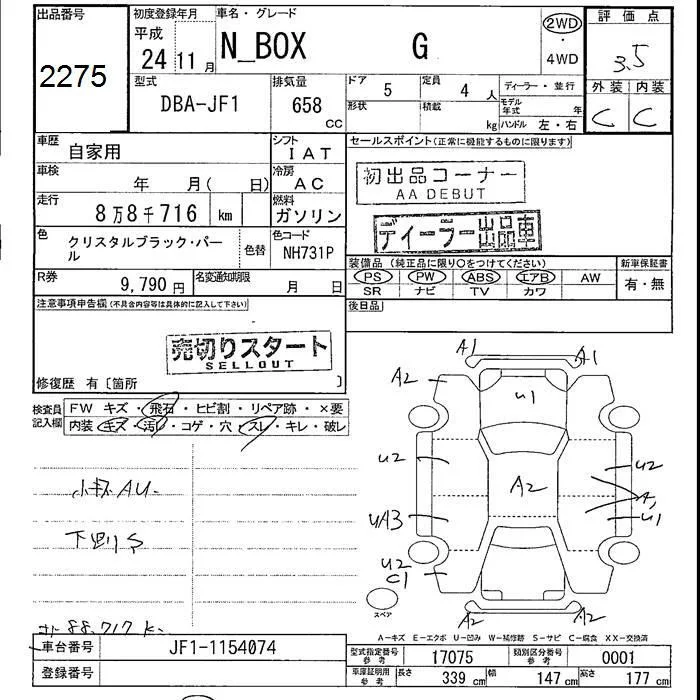 出品番号
2275
初度登録年月
平成
24 11 月
車名・グレード
N_BOX G
2WD
4WD
評価点
3.5
外装 内装
C C
型式
DBA-JF1
排気量
658
CC
ドア
5
定員
4 人
形状
積載
kg
ディーラー・並行
モデル年式 年
ハンドル 左・右
車歴
自家用
シフト
IAT
車検
年 月( 日)
冷房
AC
走行
8万8千716 km
燃料
ガソリン
色
クリスタルブラック・パール
色替
色コード
NH731P
R券
9,790 円
名変通知期限
月 日
セールスポイント(正常に機能するものに限ります)
初出品コーナー
AA DEBUT
ディーラー出品車
装備品(純正品に限り○をつけてください)
PS PW ABS エアB AW
SR ナビ TV カワ
新車保証書
有・無
後日品
注意事項申告欄(不具合内容等は具体的に記入して下さい)
売切りスタート
SELLOUT
修復歴 有〔箇所 〕
検査員記入欄
FW キズ・飛石・ヒビ割・リペア跡・×要
内装・キズ・汚れ・コゲ・穴・スレ・キレ・破レ
小キズAU
下回りS
88,717 K
A1 A1
A2
U1
U2 U2
A2
A1
UA3 U1
U2
C1
A2 A2
スペア
A-キズ E-エクボ U-凹み W-補修跡 S-サビ C-腐食 XX-交換済
車台番号
JF1-1154074
登録番号
型式指定番号 参考
17075
類別区分番号 参考
0001
車庫証明用 参考
長さ 339 cm
幅 147 cm
高さ 177 cm